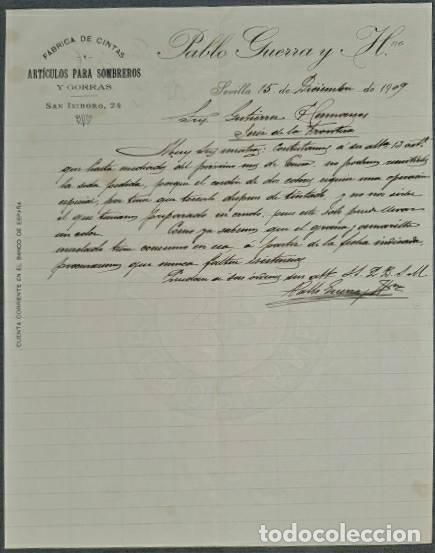 FÁBRICA DE CINTAS
Y
ARTÍCULOS PARA SOMBREROS
Y GORRAS
SAN ISIDORO, 24
Pablo Guerra y Hno
Sevilla 15 de Diciembre de 1909
Sres Gutiérrez Hermanos
Jerez de la Frontera
Muy Sres nuestros: Contestamos a su atta 13 act.
que hasta mediados del próximo mes de Enero no podemos remitirles
la seda pedida, porque el cordón de dos colores requiere una operación
especial, por tener que tocarlo después de tintado y no nos sirve
el que tenemos preparado en crudo, pues este solo puede llevar
un color. Como ya sabemos que el grana y amarillo
mezclado tiene consumo en esa, a partir de la fecha indicada
procuraremos que nunca falten existencias
Quedan a sus órdenes sus att SS. Q. B. S. M.
Pablo Guerra y Hno
CUENTA CORRIENTE EN EL BANCO DE ESPAÑA
todocoleccion.net